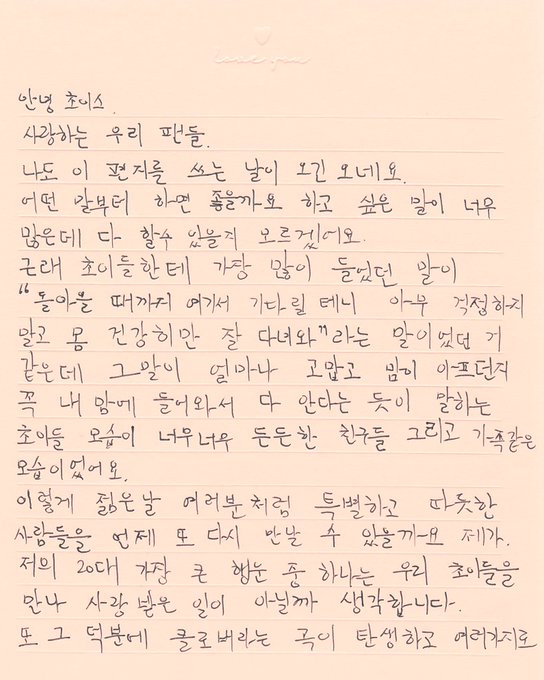 love you
안녕 초이스.
사랑하는 우리 팬들.
나도 이 편지를 쓰는 날이 오긴 오네요.
어떤 말부터 하면 좋을까요 하고 싶은 말이 너무
많은데 다 할수 있을지 모르겠어요.
근래 초이들한테 가장 많이 들었던 말이
"돌아올 때까지 여기서 기다릴 테니 아무 걱정하지
말고 몸 건강히만 잘 다녀와"라는 말이었던 거
같은데 그말이 얼마나 고맙고 맘이 아프던지
꼭 내 맘에 들어와서 다 안다는 듯이 말하는
초이들 모습이 너무너무 든든한 친구들 그리고 가족같은
모습이었어요.
이렇게 젊은날 여러분처럼 특별하고 따듯한
사람들을 언제 또 다시 만날 수 있을까요 제가.
저의 20대 가장 큰 행운 중 하나는 우리 초이들을
만나 사랑 받은 일이 아닐까 생각합니다.
또 그 덕분에 클로버라는 곡이 탄생하고 여러가지로